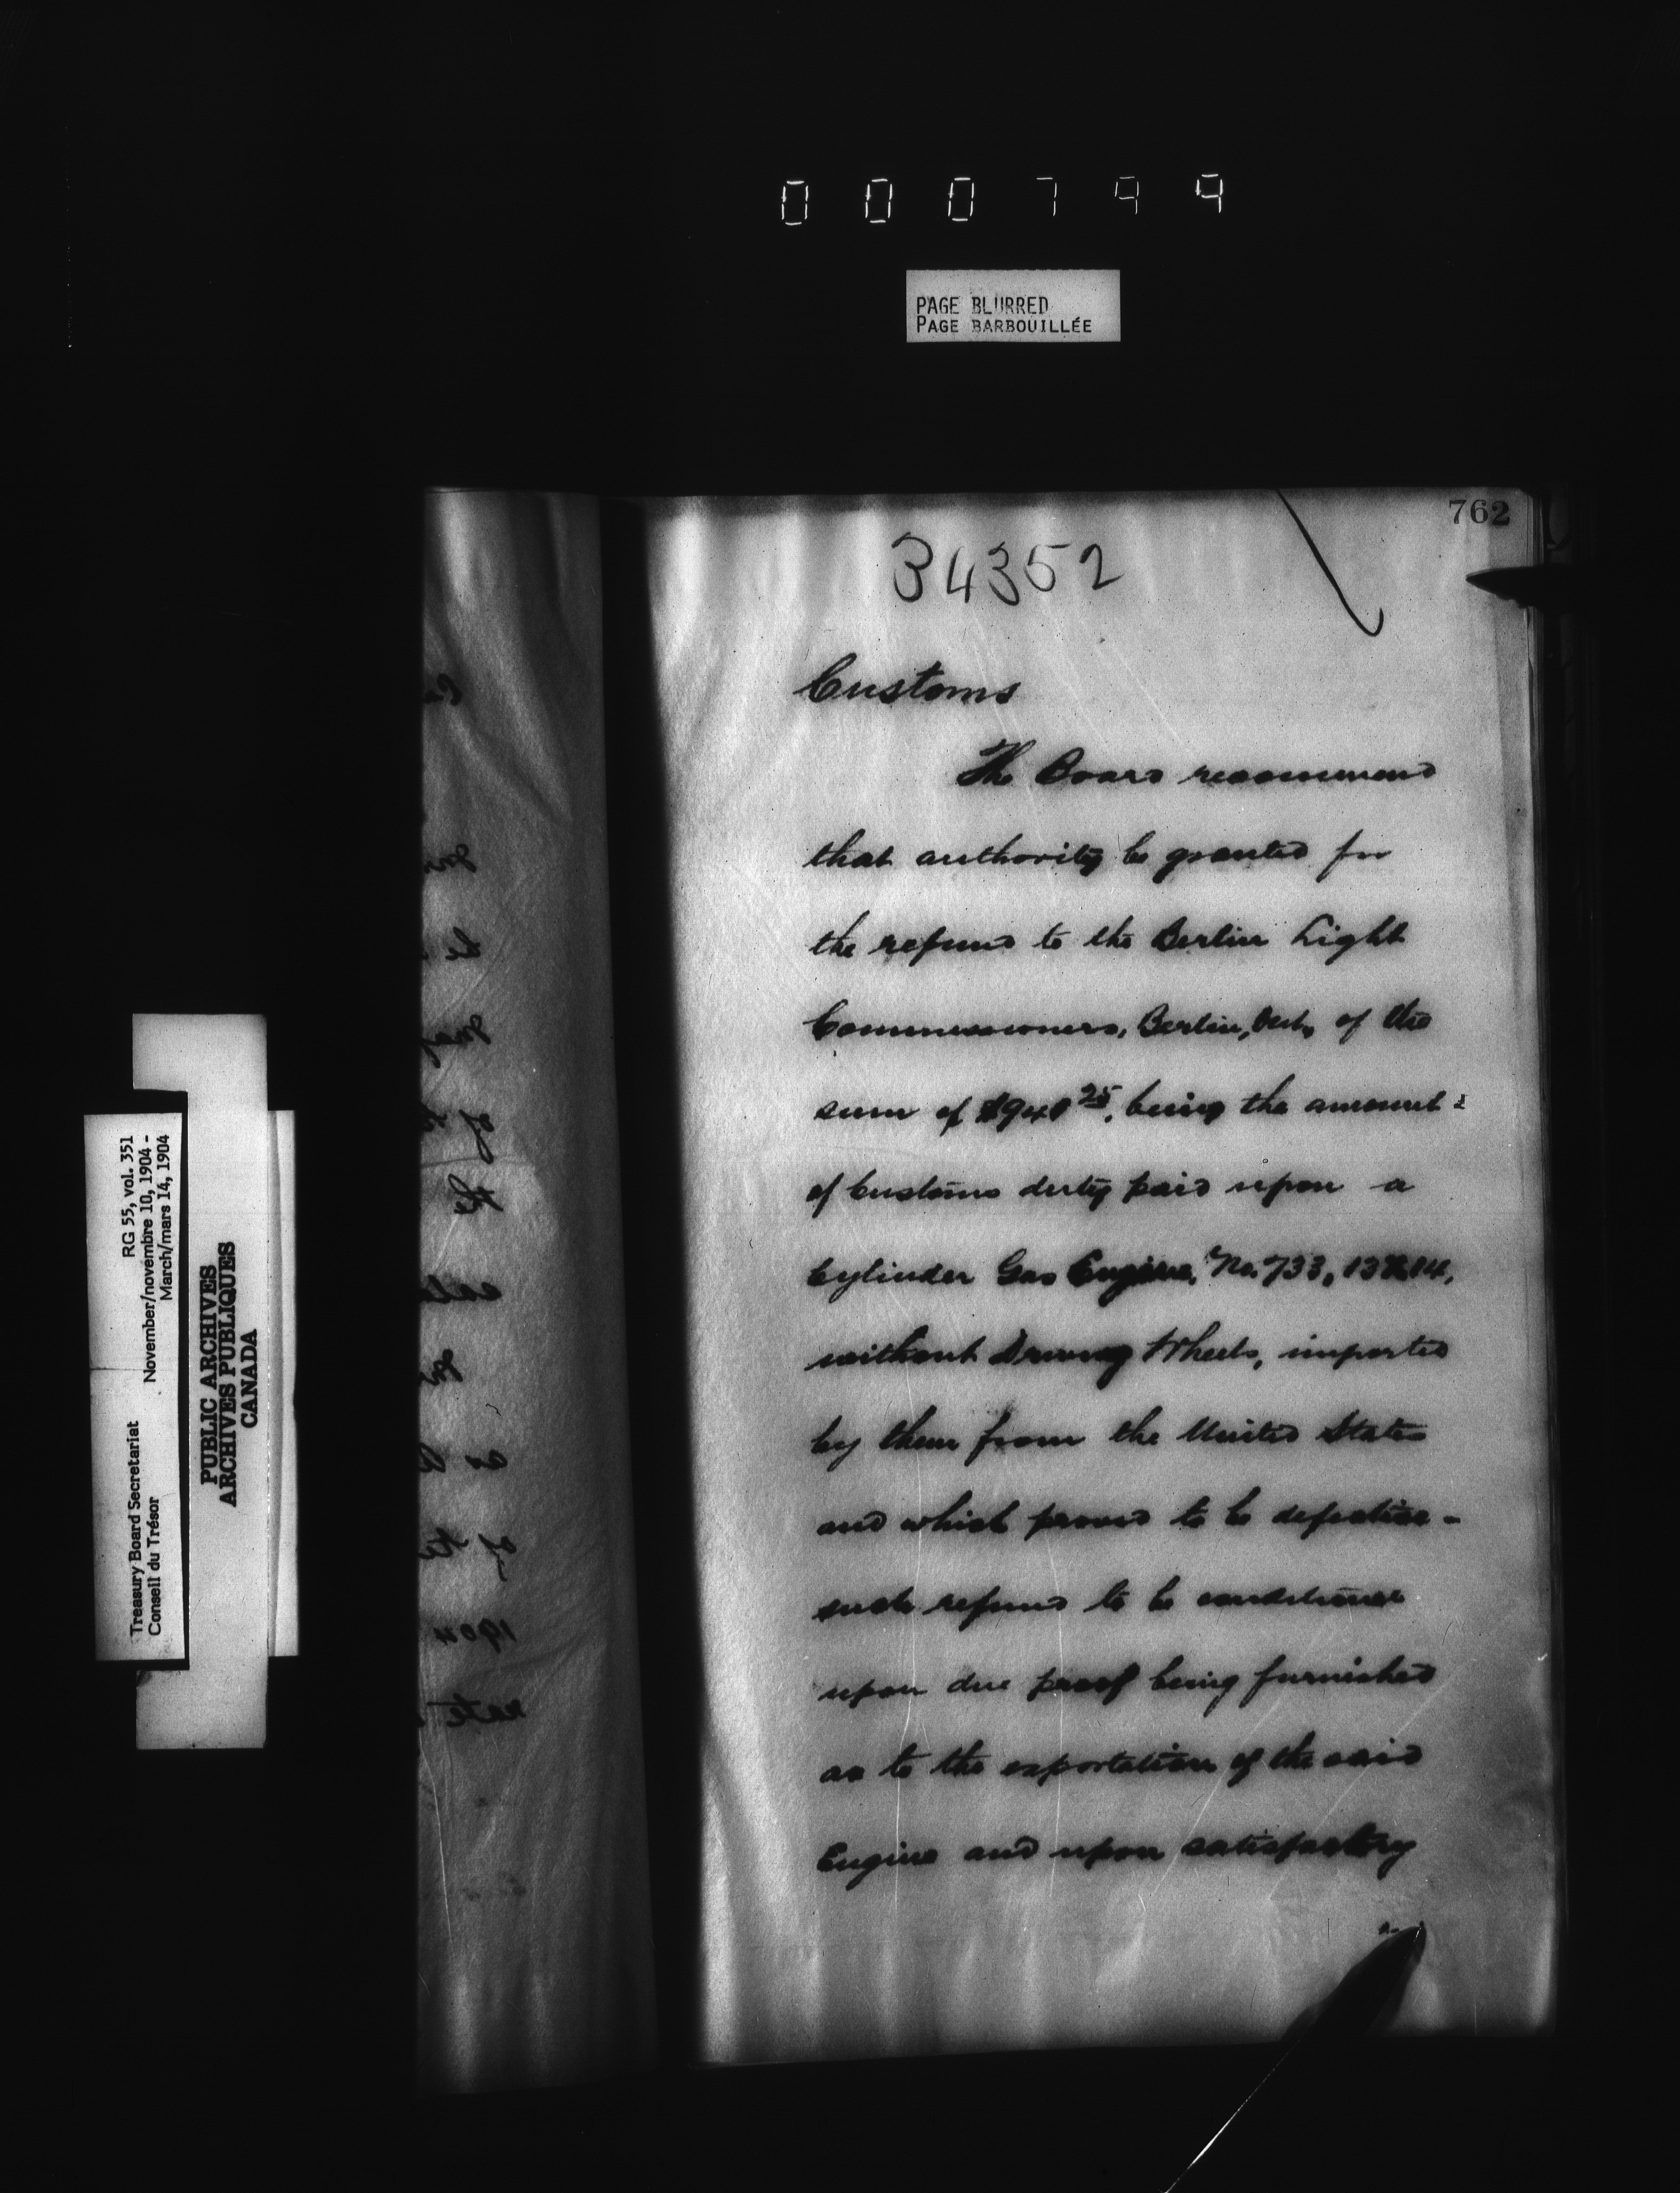 000799
PAGE BLURRED
PAGE BARBOUILLÉE
762
34352
Customs
The Board recommend
that authority be granted for
the refund to the Berlin Light
Commissioners, Berlin, Ont, of the
sum of being the amount
of Customs duty paid upon a
Cylinder Gas Engine, No. 733, 13X14,
without Driving Wheels, imported
by them from the United States
and which proved to be defective -
such refund to be conditional
upon due proof being furnished
as to the exportation of the said
Engine and upon satisfactory
Treasury Board Secretariat RG 55, vol. 351
Conseil du Trésor November/novembre 10, 1904 -
March/mars 14, 1904
PUBLIC ARCHIVES
ARCHIVES PUBLIQUES
CANADA
of
the
of the
1904
rate